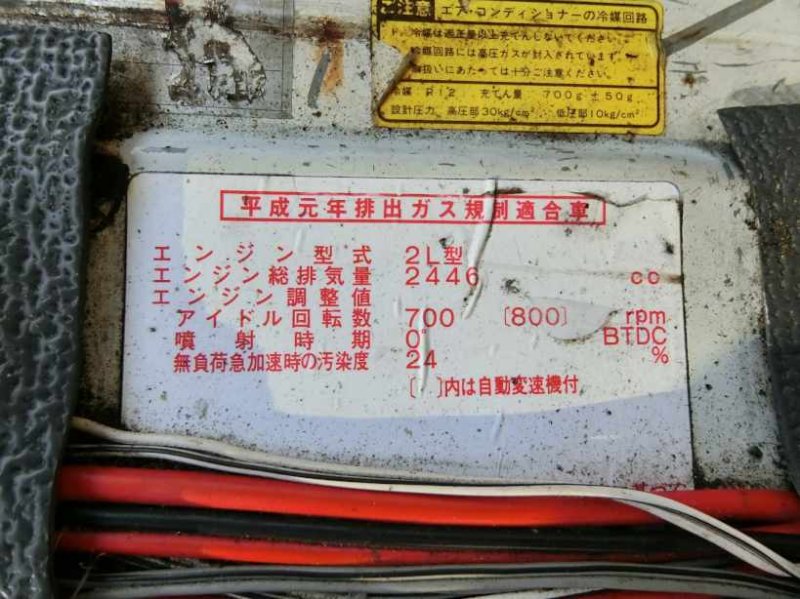 ご注意 エア・コンディショナーの冷媒回路
冷媒は適正量以上充てんしないでください。
冷媒回路には高圧ガスが封入されています。
取扱いにあたっては十分ご注意ください。
冷媒 R12 充てん量 700g±50g
設計圧力 高圧部30kg/cm² 低圧部10kg/cm²
平成元年排出ガス規制適合車
エンジン型式 2L型
エンジン総排気量 2446 cc
エンジン調整値
アイドル回転数 700 〔800〕 rpm
噴射時期 0° BTDC
無負荷急加速時の汚染度 24 %
〔 〕内は自動変速機付